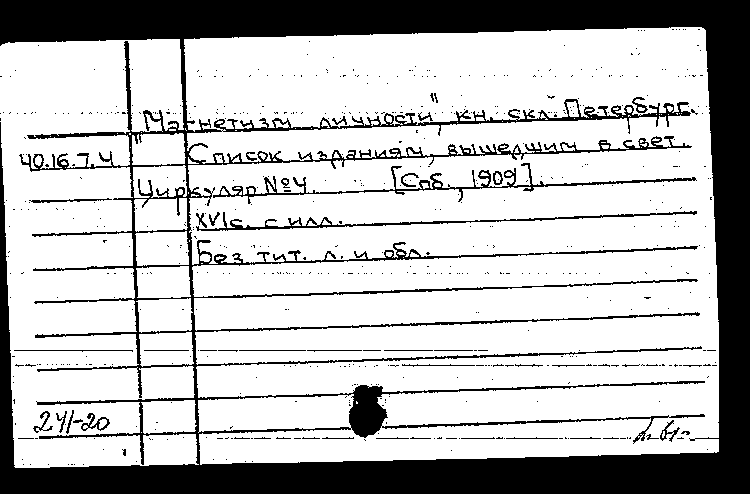 "Магнетизм личности", кн. скл. Петербург.
40.16.7.4 Список изданиям, вышедшим в свет.
Циркуляр №4. [Спб., 1909].
XVI с. с илл.
Без тит. л. и обл.
241-20